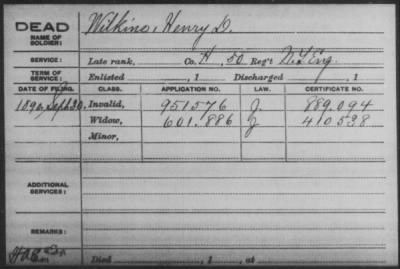 DEAD Wilkins, Henry D.
NAME OF
SOLDIER:
SERVICE: Late rank, Co. H, 50 Reg't N.Y. Eng.
TERM OF
SERVICE: Enlisted , 1 Discharged , 1
DATE OF FILING. CLASS. APPLICATION NO. LAW. CERTIFICATE NO.
1890, Sept 30, Invalid, 951576 J 889.094
Widow, 601.886 J 410538
Minor,
ADDITIONAL
SERVICES:
REMARKS:
Died , 1 , at